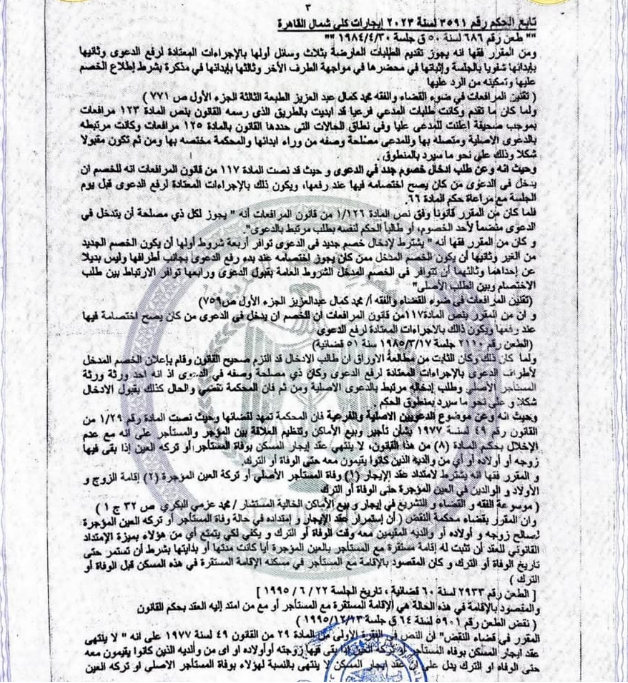 ٣
تابع الحكم رقم ٣٥٩٦ لسنة ٢٠٢٣ إيجارات كلي شمال القاهرة
"" طعن رقم ٦٨٦ لسنة ٥٠ ق جلسة ١٩٨٤/٤/٣٠ ""
ومن المقرر فقها انه يجوز تقديم الطلبات العارضة بثلاث وسائل أولها بالإجراءات المعتادة لرفع الدعوى وثانيها
بإبدائها شفويا بالجلسة وإثباتها في محضرها في مواجهة الطرف الأخر وثالثها بإبدائها في مذكرة بشرط إطلاع الخصم
عليها وتمكينه من الرد عليها
( تقنين المرافعات في ضوء القضاء والفقه محمد كمال عبد العزيز الطبعة الثالثة الجزء الأول ص ٧٧١ )
ولما كان ما تقدم وكانت طلبات المدعي فرعيا قد ابديت بالطريق الذي رسمه القانون بنص المادة ١٢٣ مرافعات
بموجب صحيفة اعلنت للمدعى عليا وفى نطاق الحالات التى حددها القانون بالمادة ١٢٥ مرافعات وكانت مرتبطه
بالدعوى الاصلية ومتصلة بها وللمدعي مصلحة وصفه من وراء ابدائها والمحكمة مختصه بها ومن ثم تكون مقبولا
شكلا وذلك على نحو ما سيرد بالمنطوق.
وحيث انه وعن طلب ادخال خصوم جدد في الدعوى و حيث قد نصت المادة ١١٧ من قانون المرافعات انه للخصم ان
يدخل في الدعوى من كان يصح اختصامه فيها عند رفعها، ويكون ذلك بالإجراءات المعتادة لرفع الدعوى قبل يوم
الجلسة مع مراعاة حكم المادة ٦٦.
فلما كان من المقرر قانونا وفق نص المادة ١/١٢٦ من قانون المرافعات أنه " يجوز لكل ذي مصلحة أن يتدخل في
الدعوى منضماً لأحد الخصوم، أو طالباً الحكم لنفسه بطلب مرتبط بالدعوى".
و كان من المقرر فقها أنه " يشترط لإدخال خصم جديد في الدعوى توافر أربعة شروط أولها أن يكون الخصم الجديد
من الغير وثانيها أن يكون الخصم المدخل ممن كان يجوز اختصامه عند بدء رفع الدعوى بجانب أطرافها وليس بديلا
عن إحداهما وثالثهما أن تتوافر في الخصم المدخل الشروط العامة بقبول الدعوى ورابعها توافر الارتباط بين طلب
الاختصام وبين الطلب الأصلي"
(تقنين المرافعات في ضوء القضاء والفقه أ/ محمد كمال عبدالعزيز الجزء الأول ص٧٥٩)
و ان من المقرر بنص المادة١١٧من قانون المرافعات ان للخصم ان يدخل في الدعوى من كان يصح اختصامة فيها
عند رفعها ويكون ذالك بالاجراءات المعتادة لرفع الدعوى
(الطعن رقم ٢١١٠ جلسة ١٩٨٥/٣/١٧ سنة ٥١ قضائية)
ولما كان ذلك وكان الثابت من مطالعة الاوراق ان طالب الإدخال قد التزم صحيح القانون وقام بإعلان الخصم المدخل
لأطراف الدعوى بالإجراءات المعتادة لرفع الدعوى وكان ذي مصلحة وصفه في الدعوى اذ انه احد ورثة ورثة
المستأجر الأصلي وطلب إدخاله مرتبط بالدعوى الاصلية ومن ثم فان المحكمة تقضي والحال كذلك بقبول الادخال
شكلا و على نحو ما سيرد بمنطوق الحكم.
وحيث انه وعن موضوع الدعويين الاصلية والفرعية فان المحكمة تمهد لقضائها وحيث نصت المادة رقم ١/٢٩ من
القانون رقم ٤٩ لسنة ١٩٧٧ بشأن تأجير وبيع الأماكن وتنظيم العلاقة بين المؤجر والمستأجر على انه مع عدم
الإخلال بحكم المادة (٨) من هذا القانون، لا ينتهى عقد إيجار المسكن بوفاة المستأجر أو تركه العين إذا بقى فيها
زوجه أو أولاده أو أي من والديه الذين كانوا يقيمون معه حتى الوفاة أو الترك.
و المقرر فقها انه يشترط لامتداد عقد الإيجار (١) وفاة المستأجر الأصلي أو تركة العين المؤجرة (٢) إقامة الزوج و
الأولاد و الوالدين في العين المؤجرة حتى الوفاة أو الترك
( موسوعة الفقه و القضاء و التشريع في إيجار و بيع الأماكن الخالية المستشار / محمد عزمي البكري ص ٣٢ ج ١ )
وان المقرر بقضاء محكمة النقض ( أن إستمرار عقد الإيجار و إمتداده في حالة وفاة المستأجر أو تركه العين المؤجرة
لصالح زوجه و أولاده أو والديه المقيمين معه وقت الوفاة أو الترك و يكفي لكي يتمتع أي من هؤلاء بميزة الإمتداد
القانوني للعقد أن تثبت له إقامة مستقرة مع المستأجر بالعين المؤجرة أيا كانت مدتها أو بدايتها بشرط أن تستمر حتى
تاريخ الوفاة أو الترك و كان المقصود بالإقامة مع المستأجر في مسكنه الإقامة المستقرة في هذه المسكن قبل الوفاة أو
الترك )
[ الطعن رقم ٢٩٣٣ لسنة ٦٠ قضائية ، تاريخ الجلسة ٢٢ / ٦ / ١٩٩٥ ]
والمقصود بالإقامة في هذه الحالة هي الإقامة المستقرة مع المستأجر أو مع من امتد إليه العقد بحكم القانون
( نقض الطعن رقم ٥٩٠١ لسنة ٦٤ ق جلسة ١٩٩٥/١٢/١٣ )
المقرر في قضاء النقض" ان النص في الفقرة الأولى من المادة ٢٩ من القانون ٤٩ لسنة ١٩٧٧ على انه " لا ينتهى
عقد ايجار المسكن بوفاة المستأجر أو تركه العين إذا بقى فيها زوجته أوأولاده او اى من وألديه الذين كانوا يقيمون معه
حتى الوفاة او الترك يدل على أن عقد ايجار المسكن لا ينتهى بالنسبة لهؤلاء بوفاة المستأجر الاصلى او تركة العين